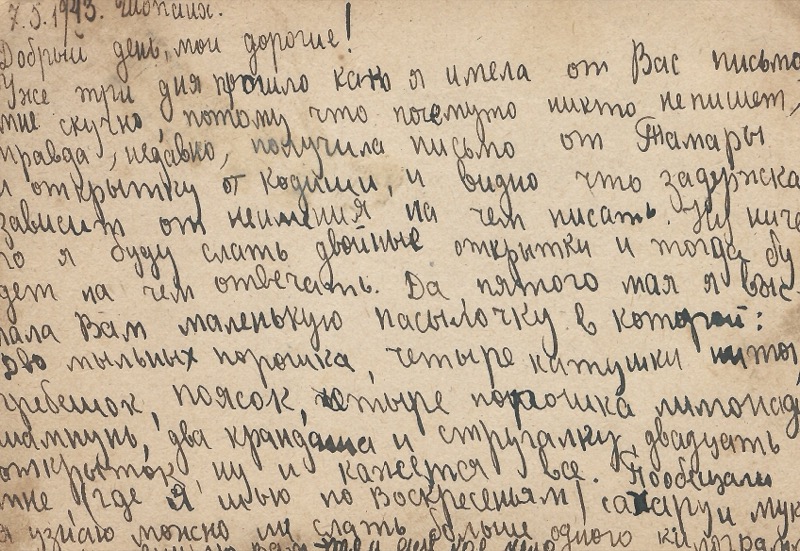 7.5.1943.
Добрый день, мои дорогие!
Уже три дня прошло как я имела от Вас письмо
мне скучно, потому что почемуто никто не пишет,
правда, недавно, получила письмо от Тамары
и открытку от Кодиши, и видно что задержка
зависит от неимения на чем писать. Ну ниче
го я буду слать двойные открытки и тогда бу
дет на чем отвечать. Да пятого мая я выс-
лала Вам маленькую пасылочку в которой:
два мыльных порошка, четыре катушки ниток,
гребешок, поясок, четыре порошка лимонад,
шампунь, два крандаша и стругалку, двадцать
открыток, ну и кажется все. Пообещали
мне (где я шью по Воскресеньям) сахару и мук
я узнаю можно ли слать больше одного килграм